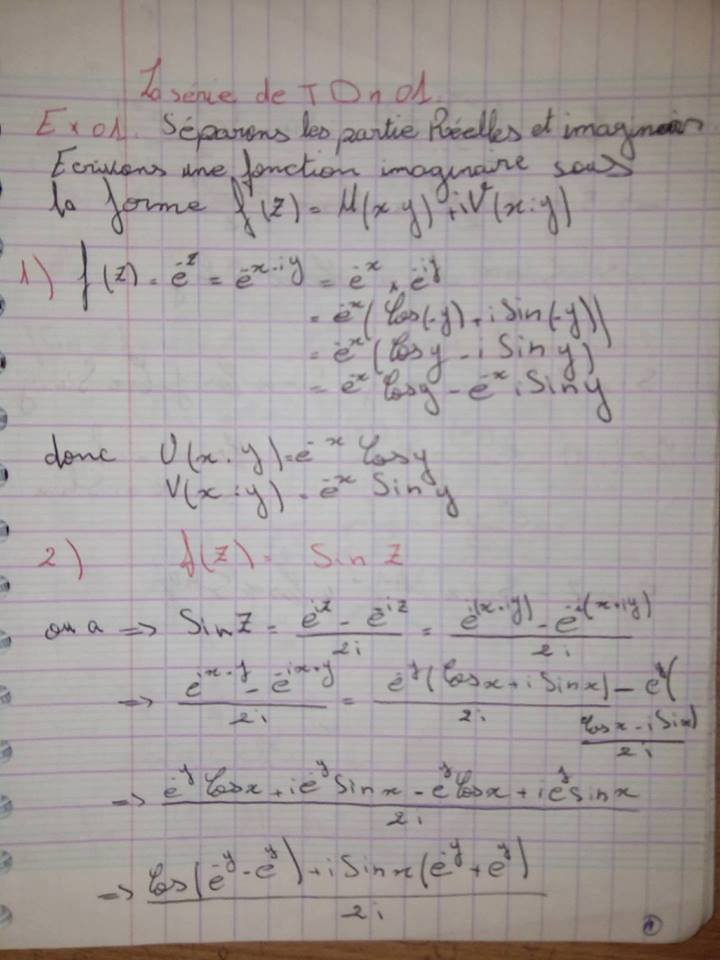 La série de TD n 01.
Ex 01. Séparons les partie Réelles et imaginaires
Ecrivons une fonction imaginaire sous
la forme f(z) = U(x.y) + iV(x.y)
1) f(z) = e^-z = e^-x-iy = e^-x × e^-iy
= e^-x (Cos(-y) + i Sin(-y))
= e^-x (Cosy - i Sin y)
= e^-x Cosy - e^-x i Siny
donc U(x.y) = e^-x Cosy
V(x.y) = e^-x Sin y
2) f(z) = Sin Z
on a => SinZ = (e^iz - e^-iz)/2i = (e^i(x+iy) - e^-i(x+iy))/2i
=> (e^ix-y - e^-ix+y)/2i = e^-y(Cosx + i Sinx)/2i - e^y(
Cosx - i Sinx)/2i
=> (e^-y Cosx + i e^-y Sinx - e^y Cosx + i e^y Sinx)/2i
=> (Cos(e^-y - e^y) + i Sinx(e^-y + e^y))/2i
1